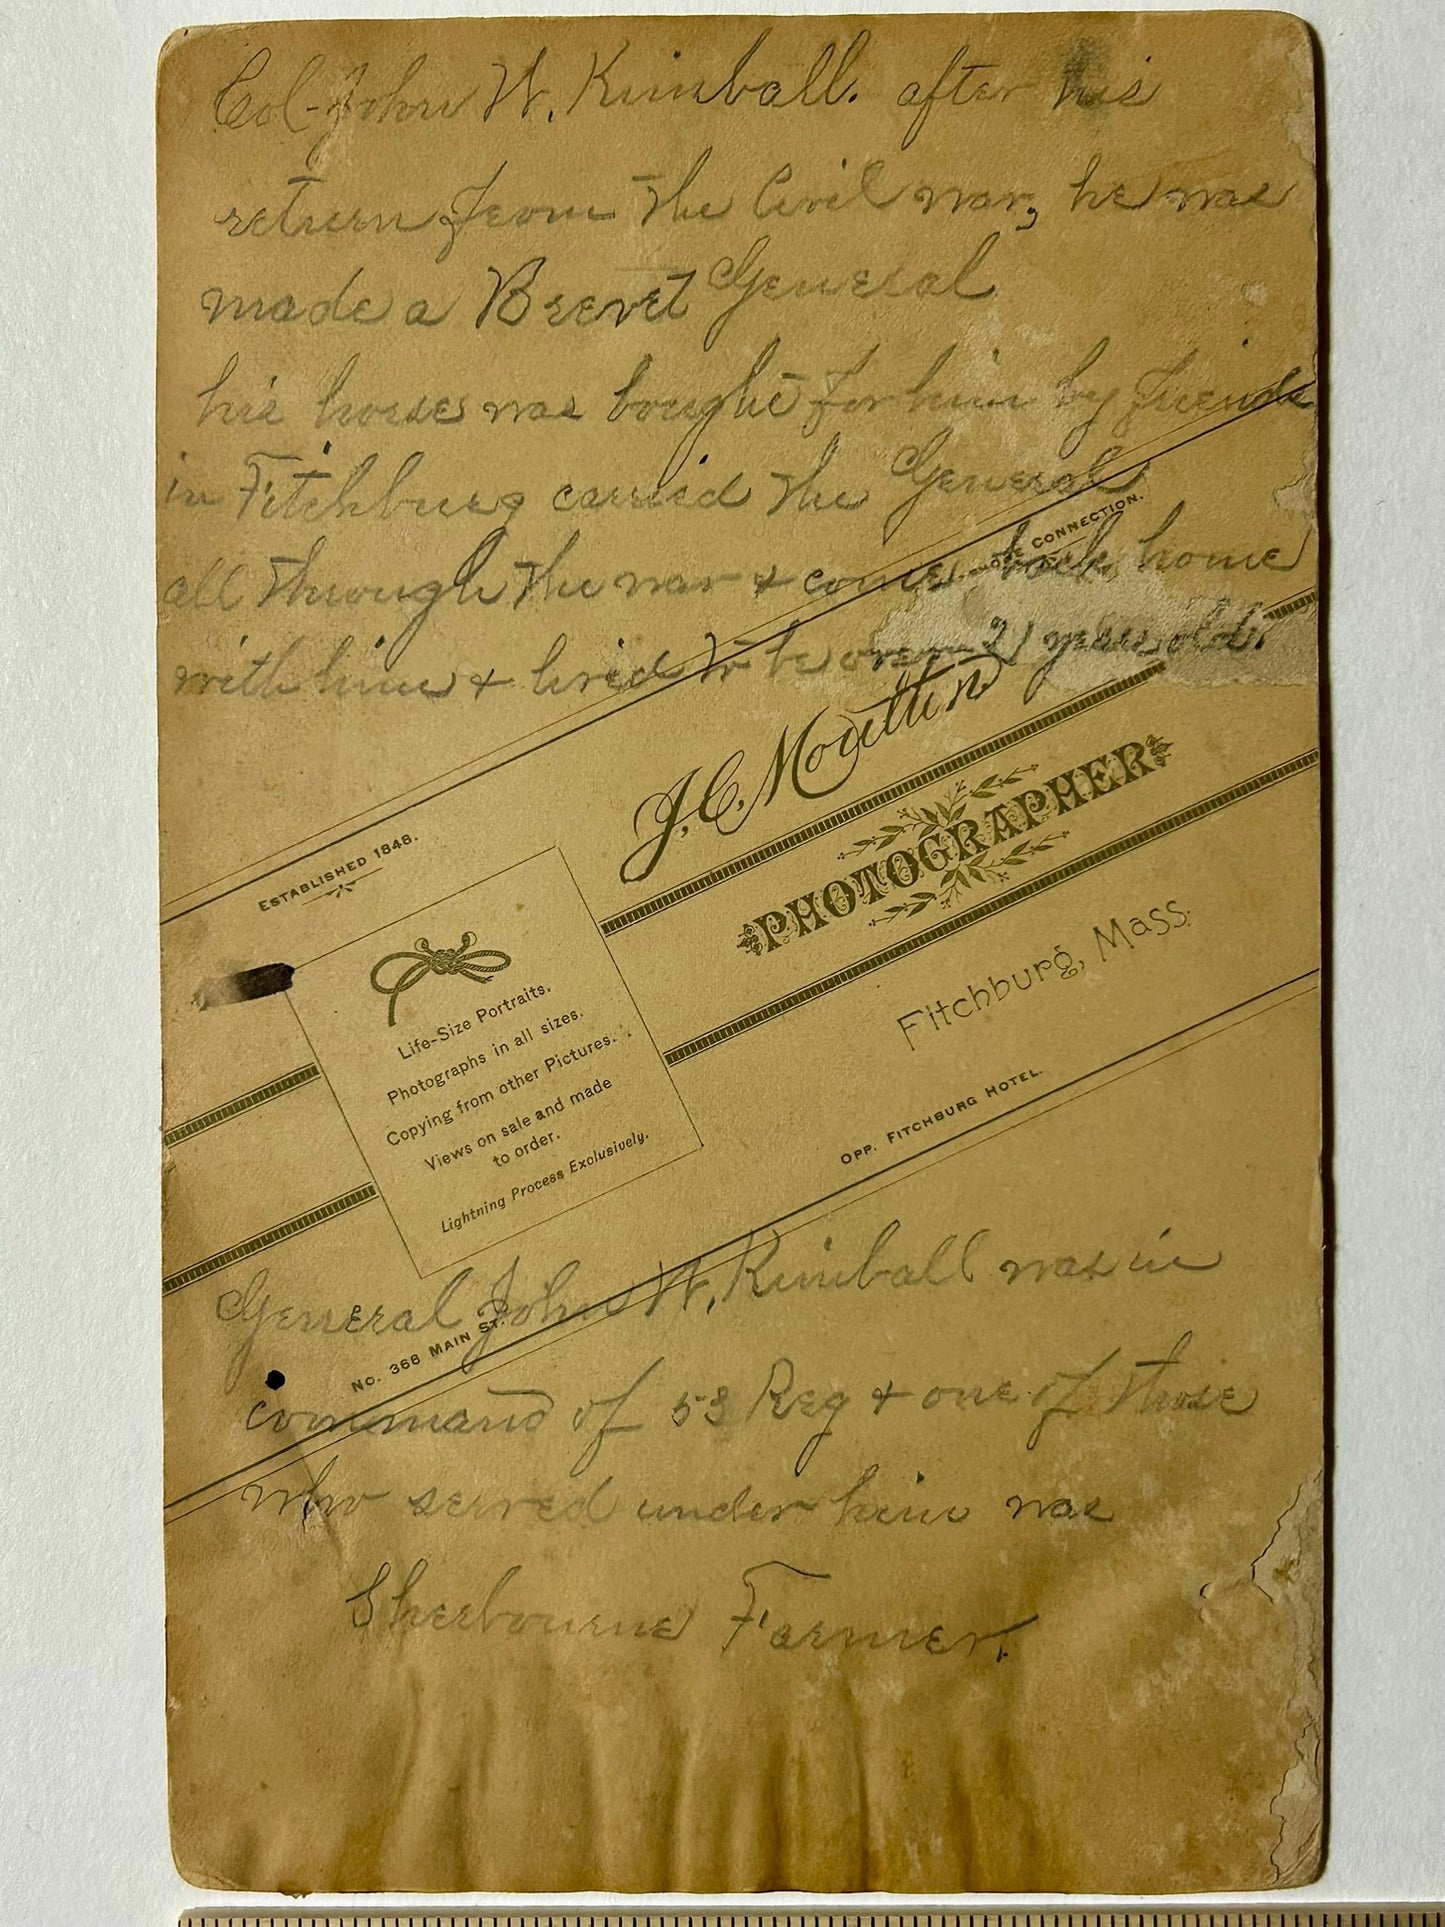 Col-John W. Kimball. after his
return from the Civil war, he was
made a Brevet General
his horse was bought for him by friends
in Fitchburg carried the General
all through the war & come back home
with him & lived to be over 21 years old.
CONNECTION.
J.C. Moulton
PHOTOGRAPHER
ESTABLISHED 1848.
Fitchburg, Mass.
Life-Size Portraits.
Photographs in all sizes.
Copying from other Pictures.
Views on sale and made
to order.
Lightning Process Exclusively.
OPP. FITCHBURG HOTEL.
No. 366 MAIN ST.
General John W. Kimball was in
command of 53 Reg & one of those
who served under him was
Sherbourne Farmer.